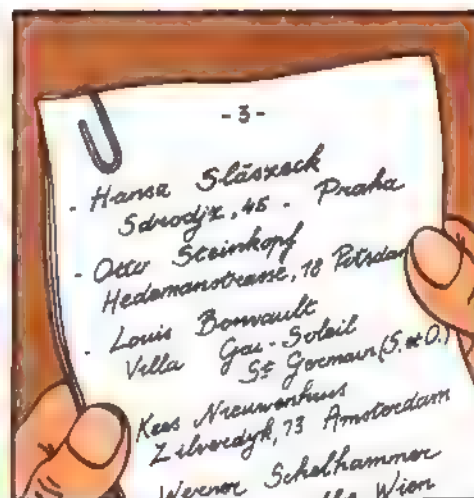 - 3 -
- Hansa Slászeck
Sdrodjz, 45 - Praha
- Otto Steinkopf
Hedemanstrasse, 18 Potsdam
- Louis Bonvault
Villa Gai-Soleil
St Germain (S. et O.)
Kees Nieuwenhuis
Zilverdyk, 73 Amsterdam
Werner Schelhammer
Wien